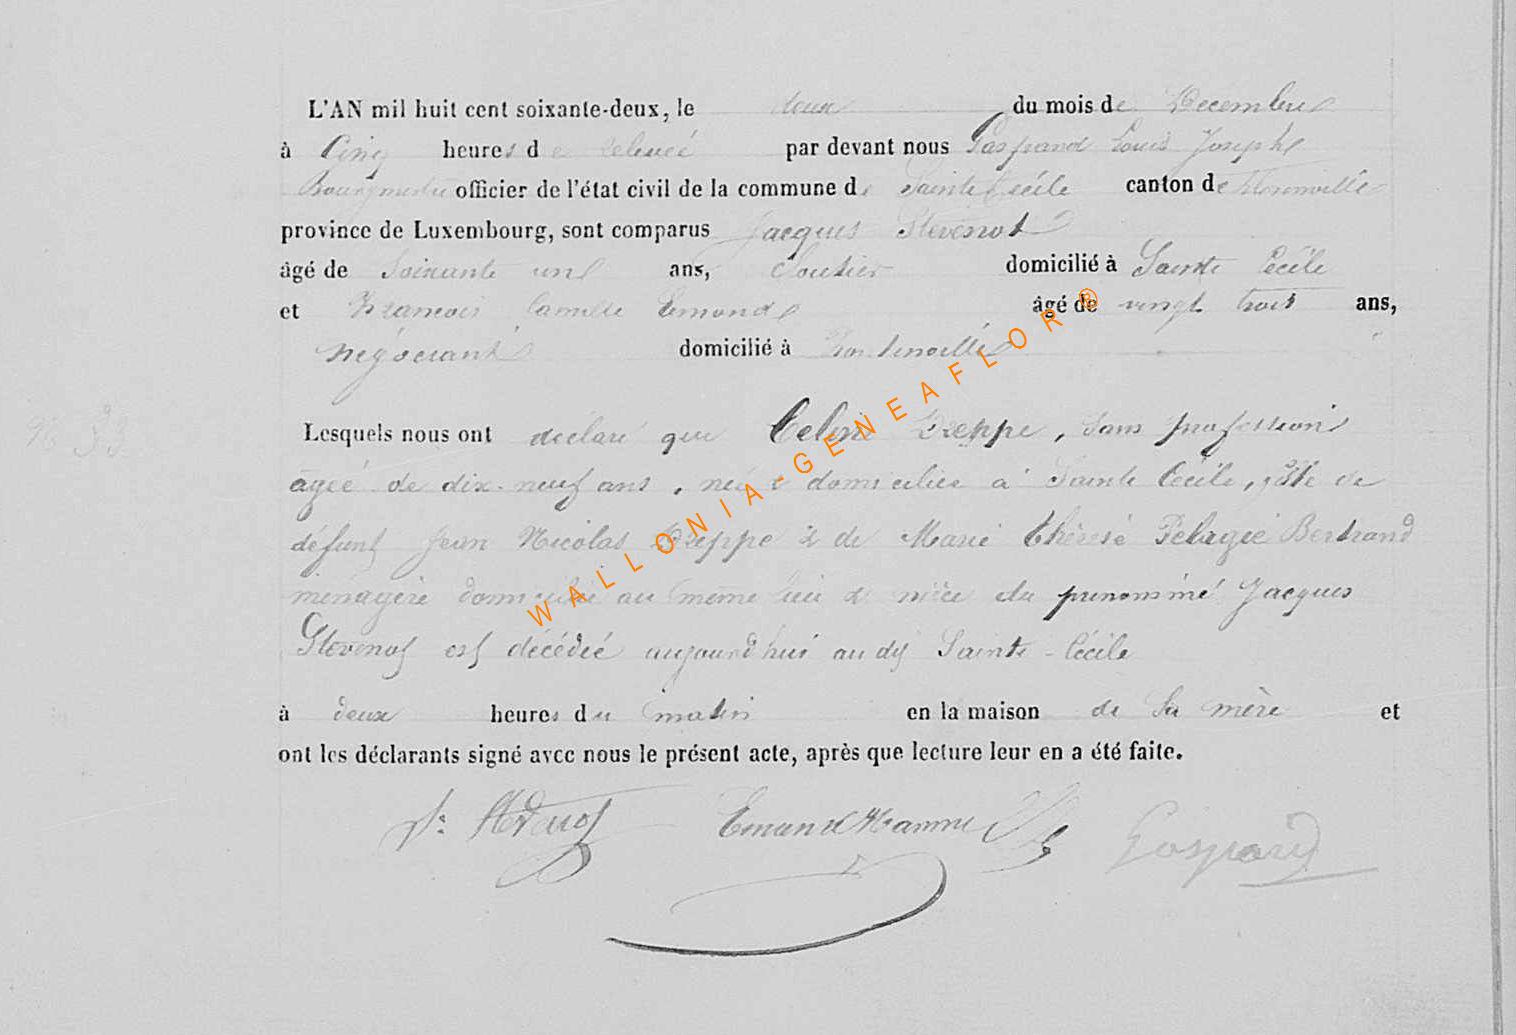 L'AN mil huit cent soixante-deux, le deux du mois de Decembre
à Cinq heures de relevée par devant nous Gaspard Louis Joseph
Bourgmestre officier de l'état civil de la commune de Sainte Cécile canton de Florenville
province de Luxembourg, sont comparus Jacques Stévenot
âgé de Soixante un ans, cloutier domicilié à Sainte Cécile
et François Camille Emond âgé de vingt trois ans,
négociant domicilié à
N° 33
Lesquels nous ont déclaré que Celine Dreppe, sans profession
agée de dix-neuf ans, née & domiciliée à Sainte Cécile, fille de
défunt Jean Nicolas Dreppe & de Marie Thérèse Pélagie Bertrand
ménagère domiciliée au même lieu & nièce du prénommé Jacques
Stévenot est décédée aujourd'hui au dit Sainte-Cécile
à deux heures du matin en la maison de Sa mère et
ont les déclarants signé avec nous le présent acte, après que lecture leur en a été faite.
J: Stévenot Emond Gaspard
WALLONIA-GENEAFLOR ®